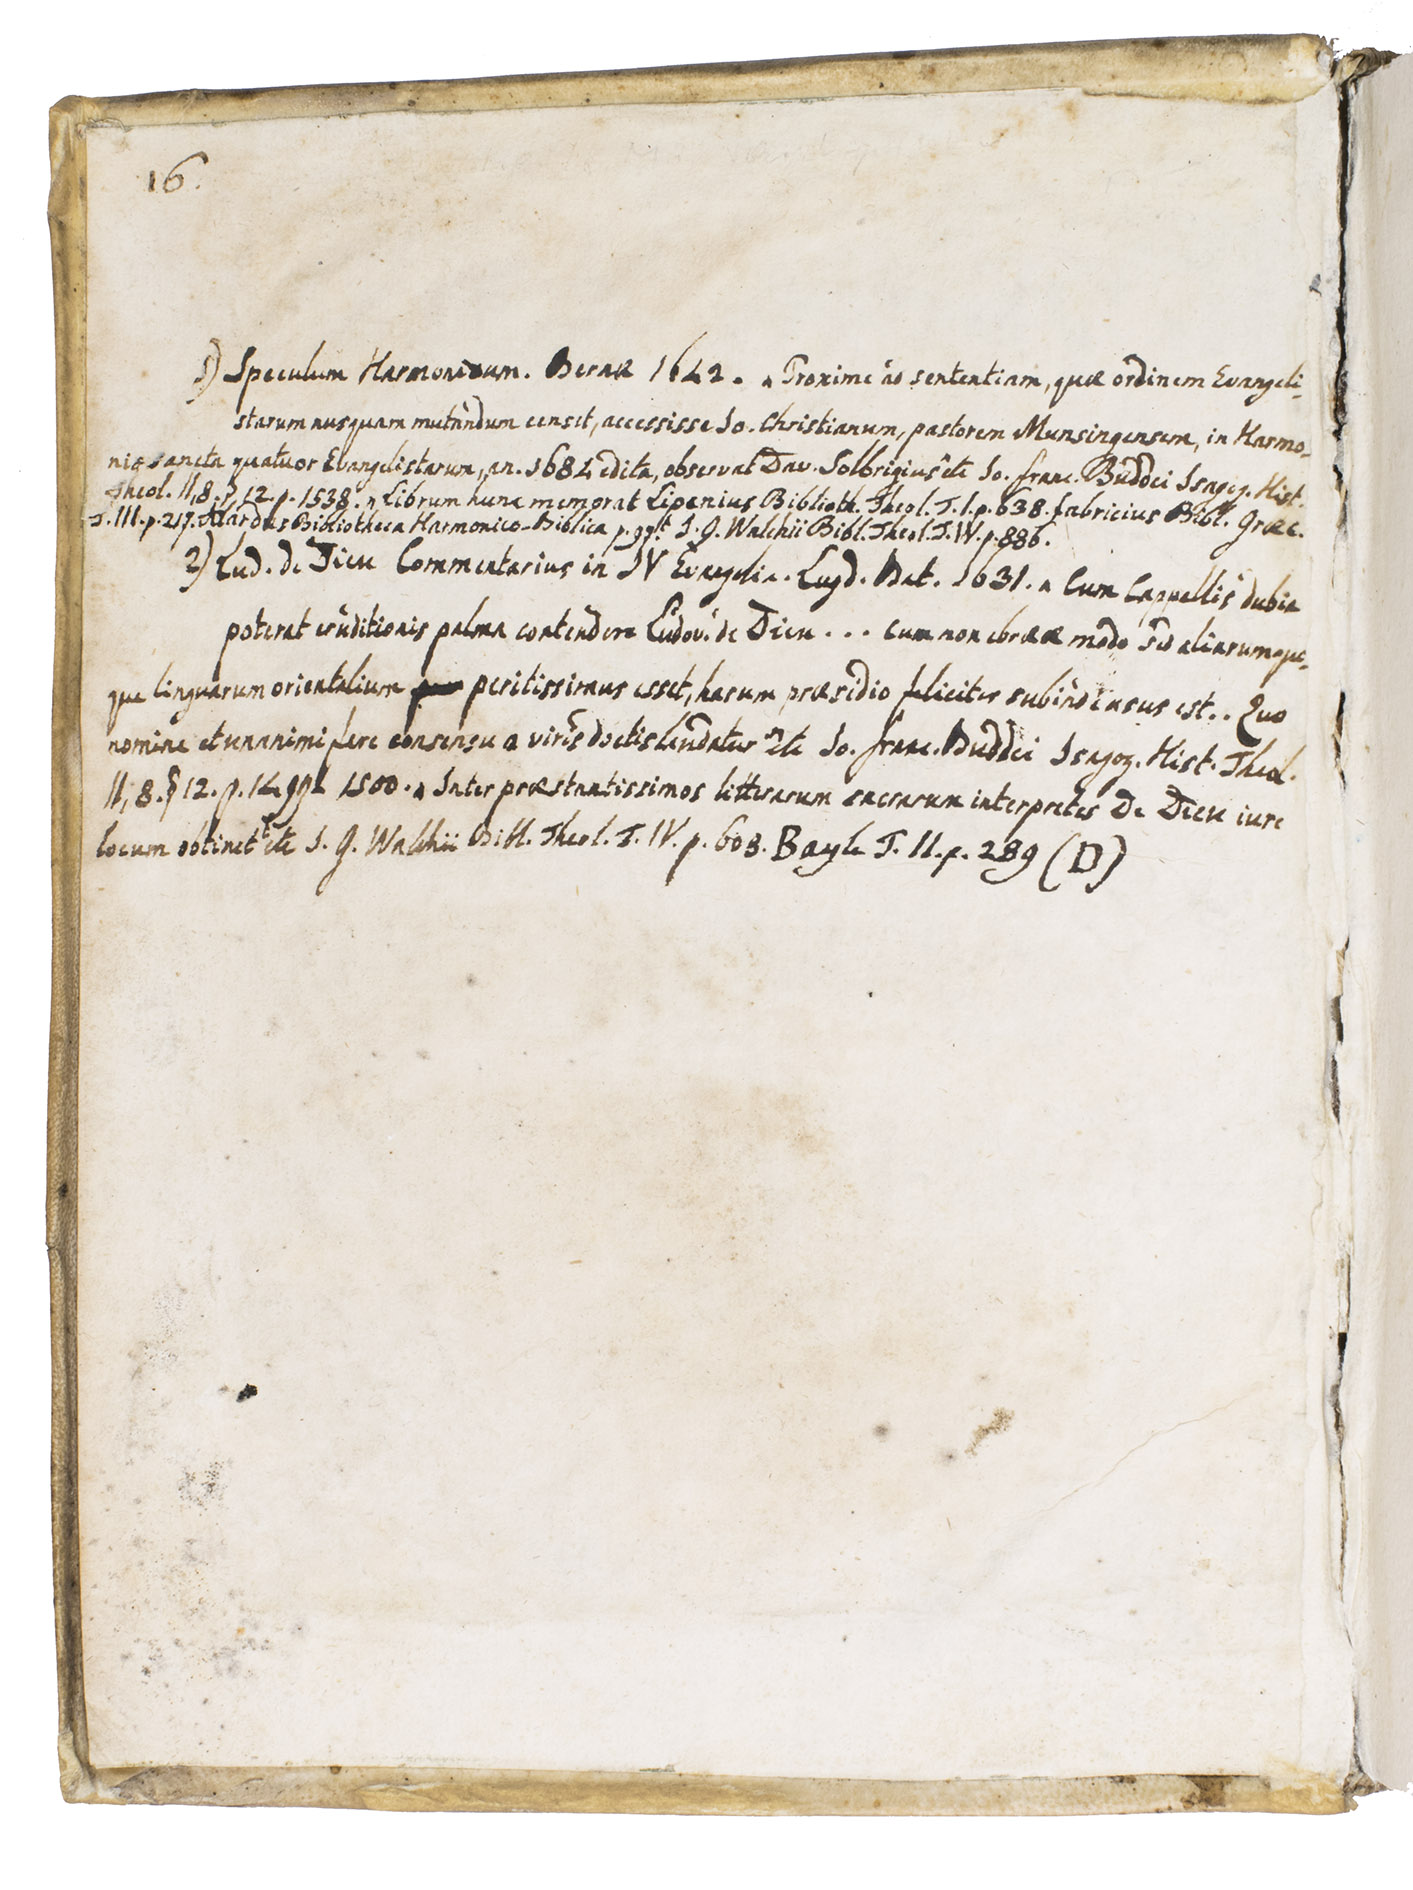 16.
1) Speculum Harmonicum. Bernæ 1642. „ Proxime ad sententiam, quæ ordinem Evangeli-
starum nusquam mutandum censet, accessisse Jo. Christianum, pastorem Munsingensem, in Harmo-
nia sancta quatuor Evangelistarum, an. 1684 edita, observat Dav. Solbrigius “ etc Jo. franc. Buddei Isagog. Hist.
Theol. II, 8. § 12. p. 1538. „ Librum hunc memorat Lipenius Biblioth. Theol. T. I. p. 638. fabricius Bibl. Græc.
T. III. p. 217. Alardus Bibliotheca Harmonico-Biblica p. 99“. J. G. Walchii Bibl. Theol. T. IV. p. 886.
2) Lud. de Dieu Commentarius in IV Evangelia. Lugd. Bat. 1631. „ Cum Cappellis dubia
poterat eruditionis palma contendere Ludov. de Dieu . . . cum non ebrææ modo sed aliarumque-
que linguarum orientalium peritissimus esset, harum præsidio feliciter subinde usus est. . Quo
nomine et unanimi fere consensu a viris doctis laudatur “ etc Jo. franc. Buddei Isagog. Hist. Theol.
II, 8. § 12. p. 1499 1500. „ Inter præstantissimos litterarum sacrarum interpretes De Dieu iure
locum obtinet “ etc J. G. Walchii Bibl. Theol. T. IV. p. 608. Bayle T. II. p. 289 (D)